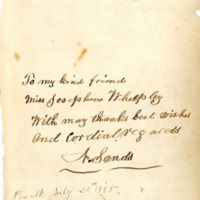 To my kind friend
Miss Josephine Whelpley
With may thanks best wishes
And Cordial regards
A. Sands
July 21st 1875